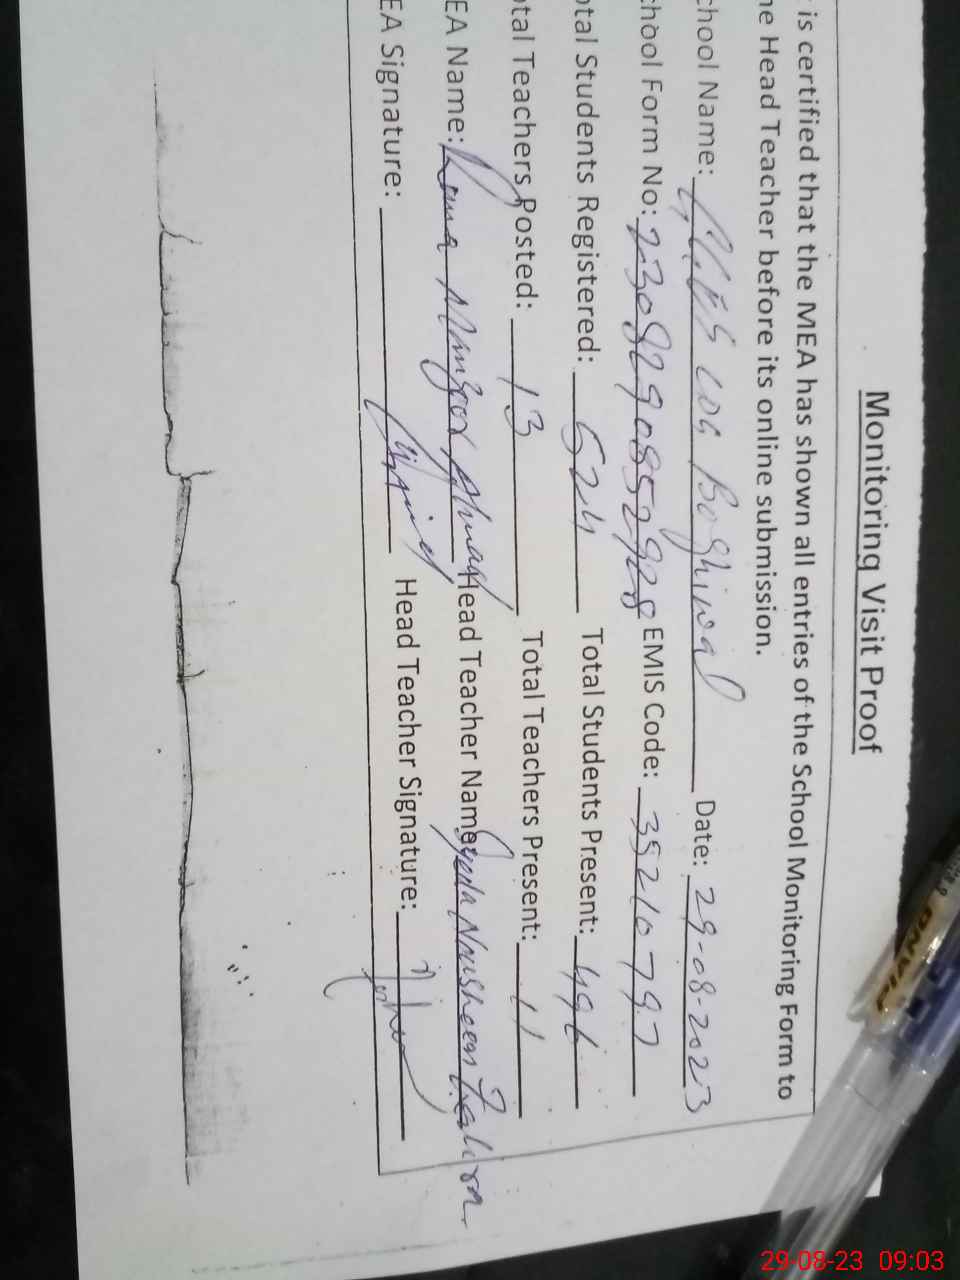 Monitoring Visit Proof
is certified that the MEA has shown all entries of the School Monitoring Form to
he Head Teacher before its online submission.
chool Name: Boghiwal Date: 29-08-2023
chool Form No: EMIS Code: 35210797
otal Students Registered: 524 Total Students Present: 496
otal Teachers Posted: 13 Total Teachers Present: 11
EA Name: Rana Manzoor Ahmad Head Teacher Name: Syeda Nousheen Zahra
EA Signature: Head Teacher Signature:
PIANO
29-08-23 09:03